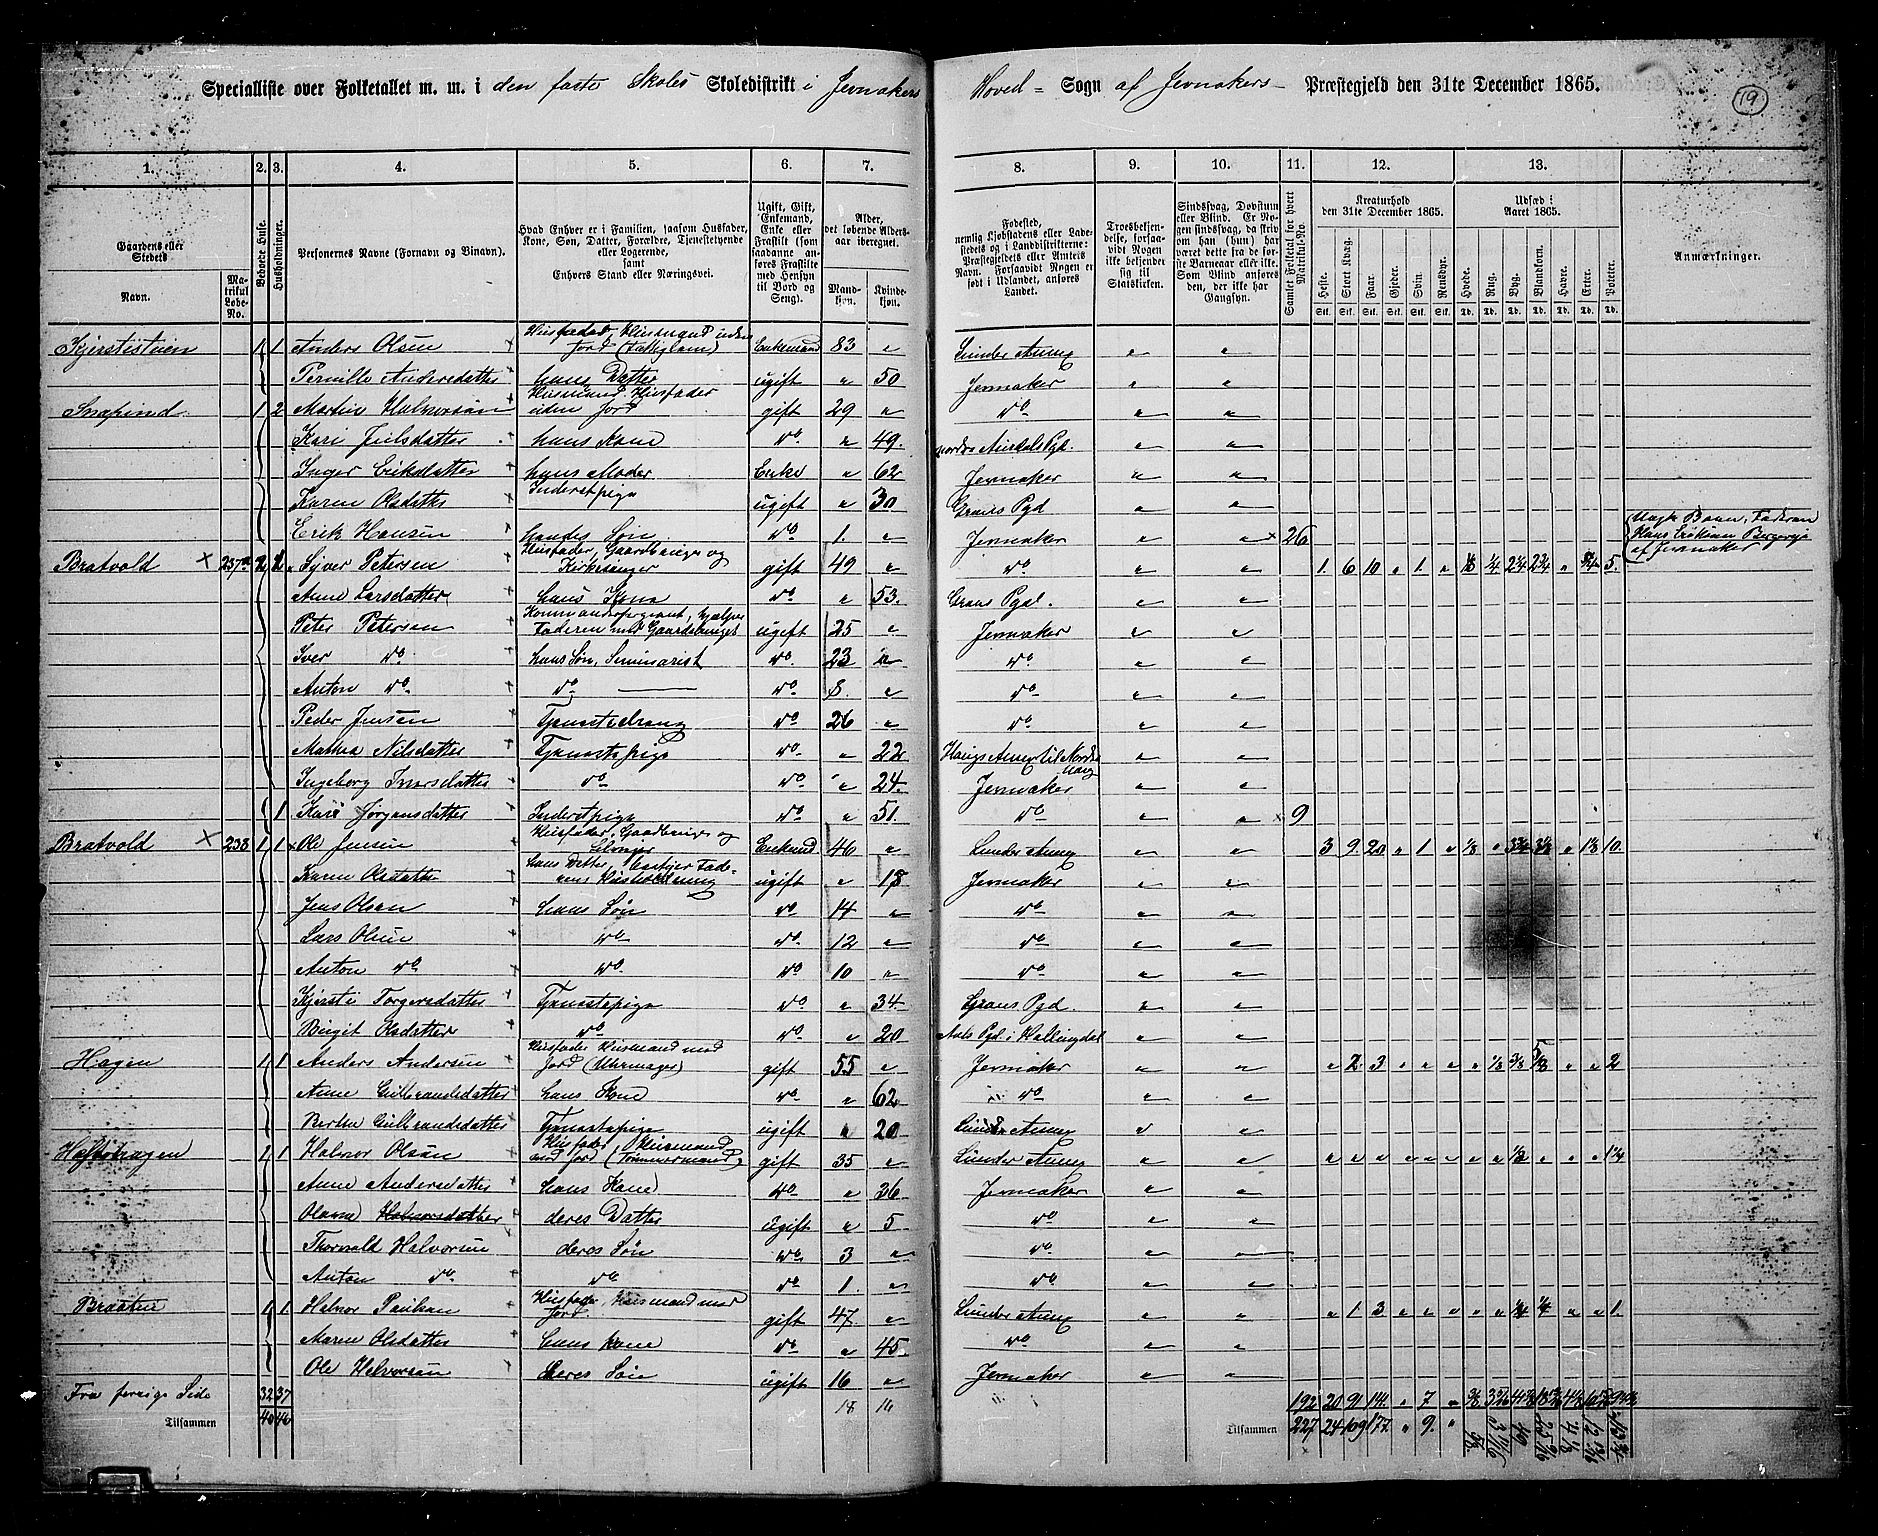 Specialliste over Folketallet m. m. i den faste Skoles Skoledistrikt i Jevnakers Hoved - Sogn af Jevnakers Præstegjeld den 31te December 1865.
19
1. 2. 3. 4. 5. 6. 7. 8. 9. 10. 11. 12. 13.
Gaardens eller Stedets
Navn.
Matrikul Løbe-No.
Beboede Huse.
Husholdninger.
Personernes Navne (Fornavn og Binavn).
Hvad Enhver er i Familien, saasom Husfader, Kone, Søn, Datter, Forældre, Tjenestetyende eller Logerende, samt Enhvers Stand eller Næringsvei.
Ugift, Gift, Enkemand, Enke eller Fraskilt (saadanne anføres Fraskilte med Hensyn til Bord og Seng).
Alder, det løbende Aldersaar iberegnet.
Mandkjøn. Kvindekjøn.
Fødested, nemlig Kjøbstadens eller Ladestedets og i Landdistrikterne: Præstegjeldets eller Annexets Navn. Forsaavidt Nogen er født i Udlandet, anføres Landet.
Troesbekjendelse, forsaavidt Nogen ikke bekjender sig til Statskirken.
Sindssvag, Døvstum eller Blind. Er Nogen sindssvag, da skriv om han (hun) har været dette fra de første Barneaar eller ikke. Som Blind anføres den, der ikke har Gangsyn.
Samlet Folketal for hvert Matrikul-No.
Kreaturhold den 31te December 1865.
Heste. Stort Kvæg. Faar. Gjeder. Svin. Rensdyr.
Udsæd i Aaret 1865.
Hvede. Rug. Byg. Blandkorn. Havre. Erter. Poteter.
Anmærkninger.
Kjerstistuen 1 1 Anders Olsen Husfader, Husmand uden Jord (Fattiglem) Enkemand 83 " Lunder Annex " "
Pernille Andersdatter hans Datter ugift " 50 Jevnaker " "
1 2 Martin Halvorsen Husmand Husfader uden Jord gift 29 " do " "
Kari Juilsdatter hans Kone do " 49 nordre Aurdals Pgd. " "
Inger Eriksdatter hans Moder Enke " 62 Jevnaker " "
Karen Olsdatter Inderstpige ugift " 30 Grans Pgd " "
Erik Hansen hendes Søn do 1 " Jevnaker " " × 26 Uægte Barn, Faderen Hans Eriksen af Jevnaker
Bratvold × 237 Syver Petersen Husfader, Gaardbruger og Kirkesanger gift 49 " do " " 1 6 10 " 1 " 1/8 1/4 2 1/4 2 3/4 " 5
Anne Larsdatter hans Kone do " 53 Grans Pgd. " "
Peter Petersen Kommandersergeant, hjælper Faderen med Gaardsbruget ugift 25 " Jevnaker " "
Iver do hans Søn, Seminarist do 23 " do " "
Anton do do do 8 " do " "
Peder Jensen Tjenestedreng do 26 " do " "
Mathea Nilsdatter Tjenestepige do " 22 Haugs Annex til Nordrehoug " "
Ingeborg Iversdatter do do " 24 Jevnaker " "
1 Kari Jørgensdatter Inderstpige do " 51 do " " × 9
Bratvold × 238 1 1 Ole Jensen Husfader, Gaardbruger og Selveier Enkemd. 46 " Lunder Annex " " 3 9 20 " 1 " 1/8 " 3 3/4 " 1 1/8 10
Karen Olsdatter hans Datter, bestyrer Faderens Husholdning ugift " 18 Jevnaker " "
Jens Olsen hans Søn do 14 " do " "
Lars Olsen do do 12 " do " "
Anton do do do 10 " do " "
Kjersti Torgersdatter Tjenestepige do " 34 Grans Pgd. " "
Birgit Olsdatter do do " 20 Aals Pgd. i Hallingdal " "
Hagen 1 1 Anders Andersen Husfader Husmand med Jord (Uhrmager) gift 55 " Jevnaker " " " 2 3 " " " " 1/8 3/8 " " 2
Anne Gulbrandsdatter hans Kone do " 62 do " "
Berthe Gulbrandsdatter Tjenestepige ugift " 20 Lunder Annex " "
1 1 Halvor Olsen Husfader, Husmand med Jord (Tømmermand) gift 35 " Lunder Annex " " " " " " " " " " 1/8 " " " 1 1/4
Anne Andersdatter hans Kone do " 36 Jevnaker " "
Olava Halvorsdatter deres Datter ugift " 5 do " "
Thorvald Halvorsen deres Søn do 3 " do " "
Anton do do do 1 " do " "
Braaten 1 1 Halvor Paulsen Husfader, Husmand med Jord. gift 47 " Lunder Annex " " " 1 3 " " " " " 1/4 1/4 " " 1
Maren Olsdatter hans Kone do " 45 do " "
Ole Halvorsen deres Søn ugift 16 " Jevnaker " "
Fra forrige Side 32 37 192 20 91 141 " 7 "
Tilsammen 40 46 18 Tilsammen 227 24 109 177 " 9 "